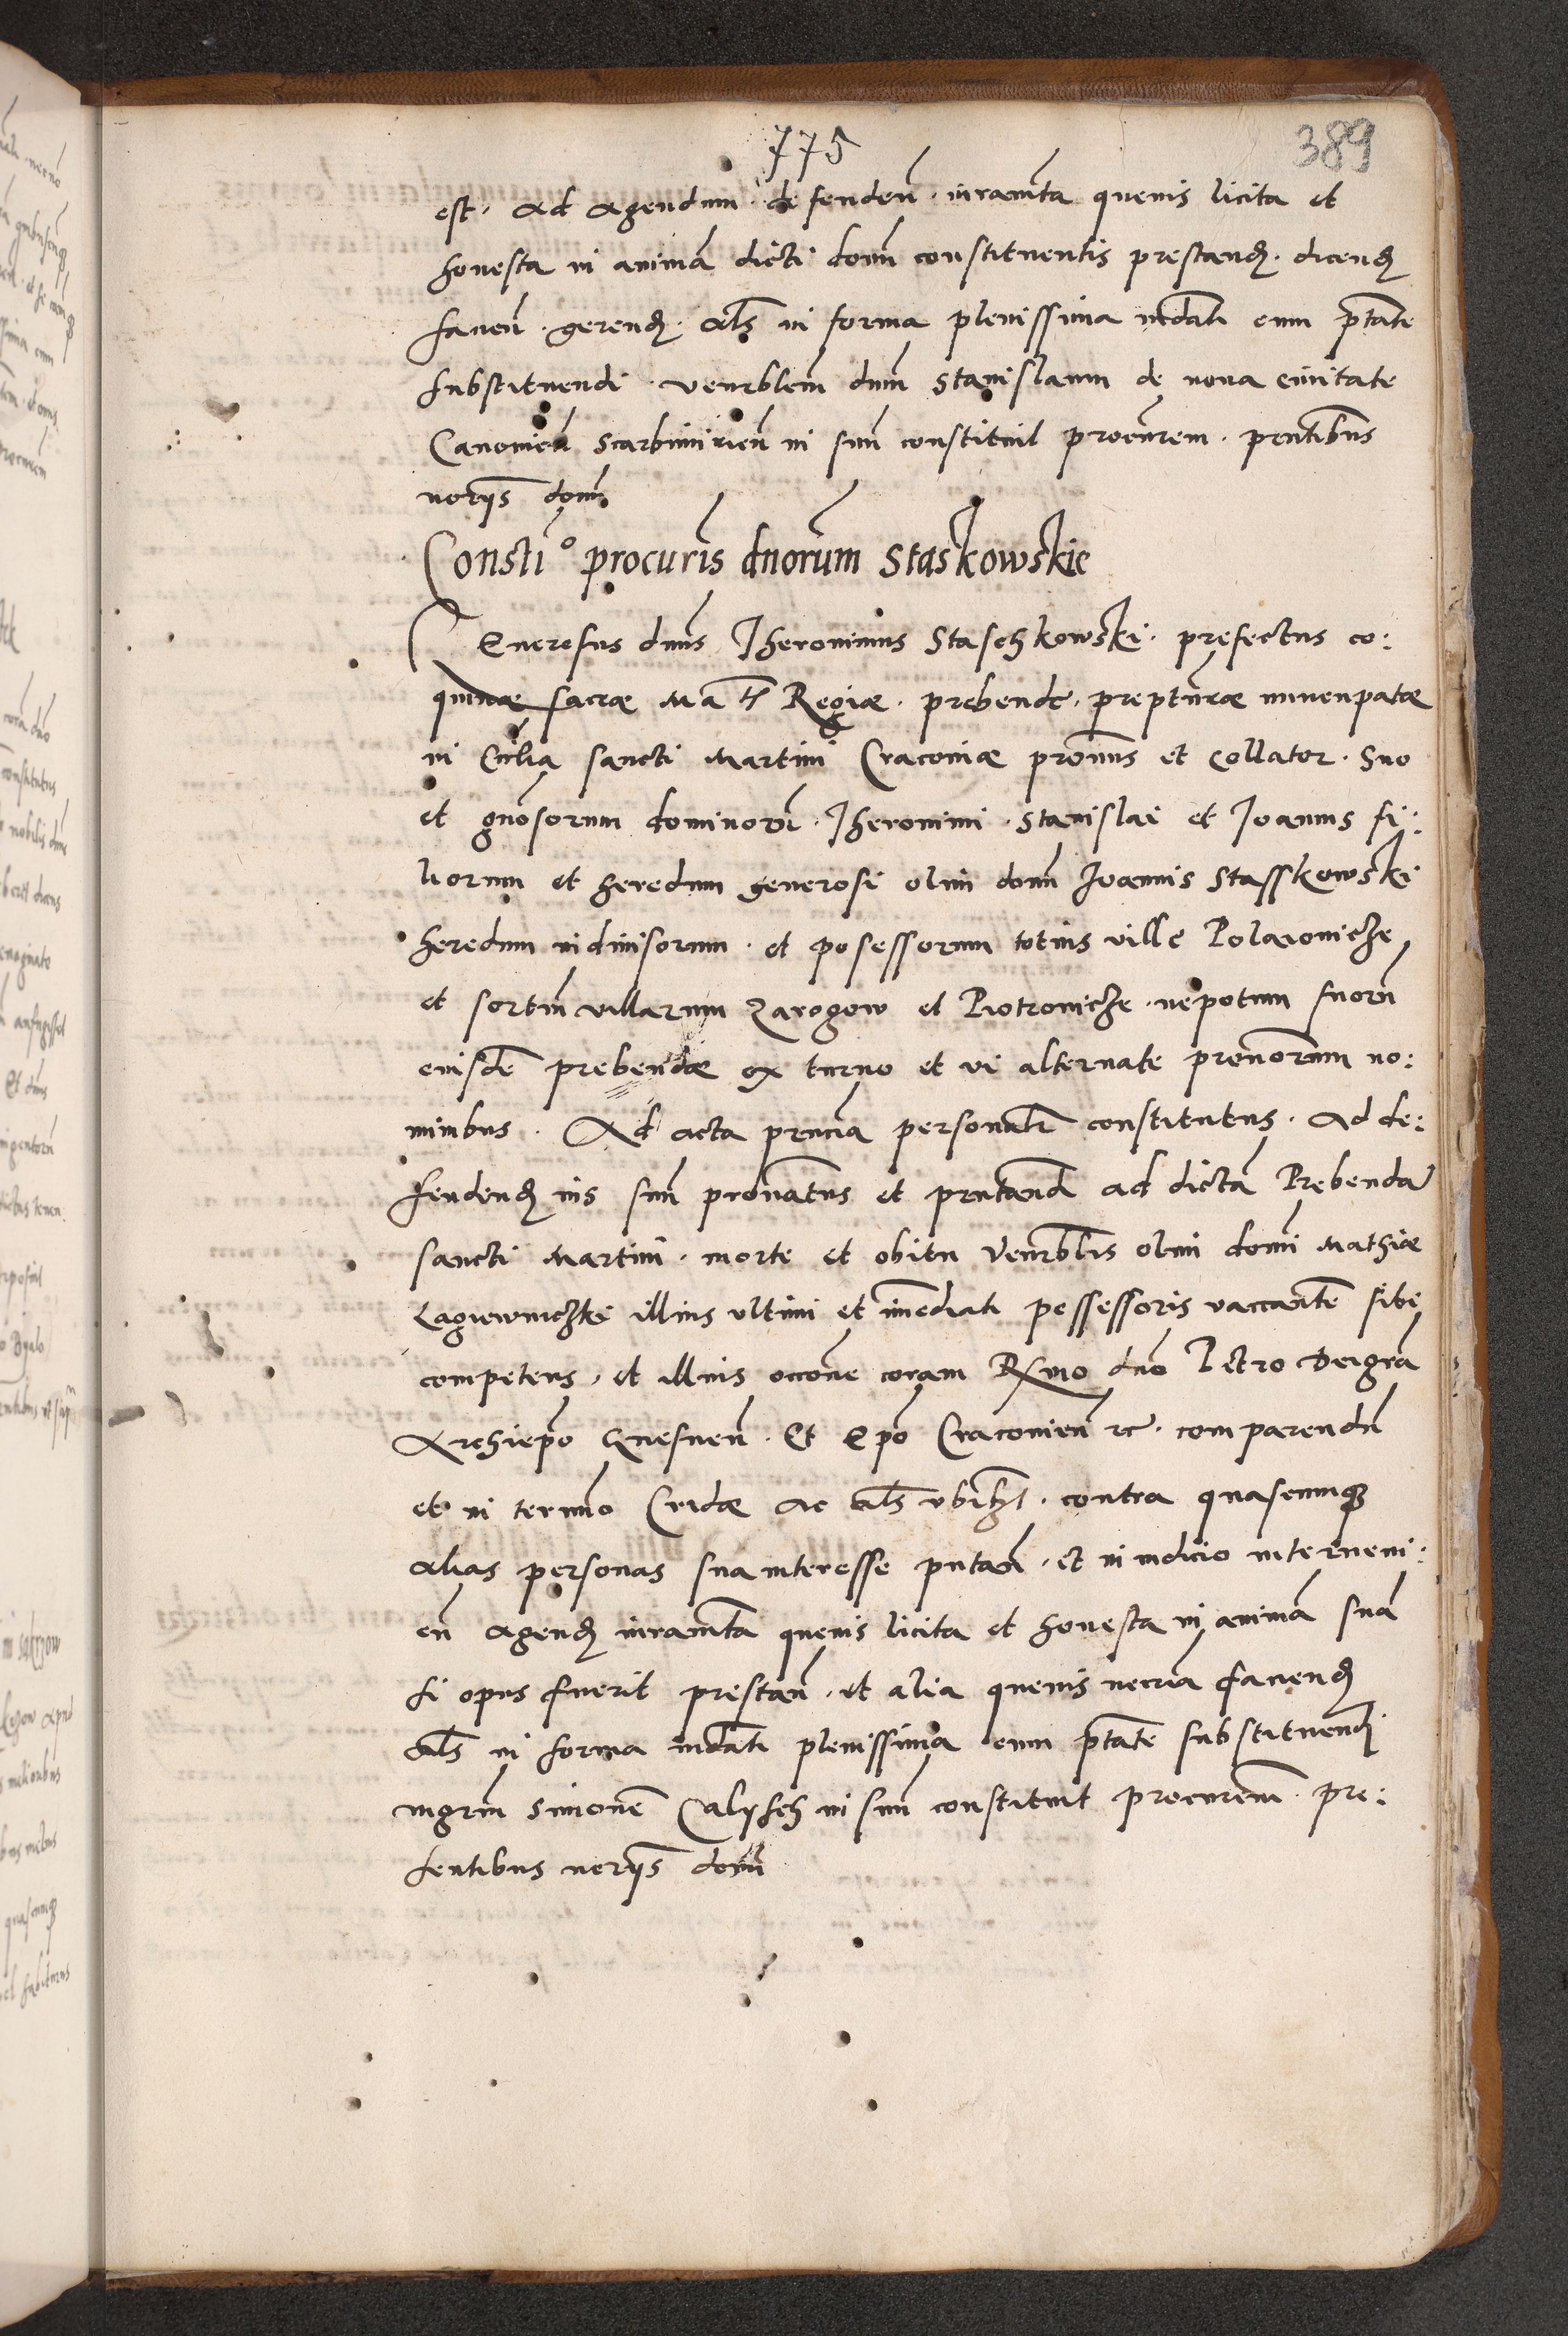 775
389
est. ad agendum defendeñ. iuramta quevis licita et
honesta in animā dicti domī constituentis prestand. dicend
facieñ. gerend. als in forma plenissima mdati cum ptāte
substituendi. venrblem dnm Stanislaum de nova civitate
Canonicū Scarbimirieñ in suū constituit procurem. prntibus
norijs domī
Consti° procuris dnorum Staskowskie
Generosus dnus Jheronimus Staschkowski. prefectus co:
quinae sacrae Mattis Regiae. prebende. prepturae nuncupatae
in Ecclia sancti Martini Cracoviae pronus et Collator. Suo
et gnosorum dominorū. Jheronimi. Stanislai et Joannis fi:
liorum et heredum generosi olim domī Joannis Stasskowski
heredum indivisorum. et posessorum totius ville Polanowicze
et sortiū villarum Zarogow et Piotrowicze. nepotum suorū
eiusdē prebendae ex turno et vi alternate pronorum no:
minibus. Ad acta prncia personalr constitutus. Ad de:
fendend ius suū pronatus et prntandi ad dictā Prebendā
sancti Martini. morte et obitu Venrblis olim domī Mathiae
Lagiewniczki illius ultimi et imediati possessoris vaccantē sibi
competens. et illius occone coram Rsmo dno Petro Dei gra
Archiepo Gnesneñ. Et Epo Cracovieñ rc. comparendū
et in termo Cridae ac als ubilibet. contra quascumq
alias personas sua interesse putañ. et in iudicio interveni:
eñ agend iuramta quevis licita et honesta in animā suā
si opus fuerit prestañ. et alia quevis necria faciend
als in forma mdati plenissima cum ptāte substituendi
mgrm Simonē Calysch in suū constituit procurem. pre:
sentibus norijs domī